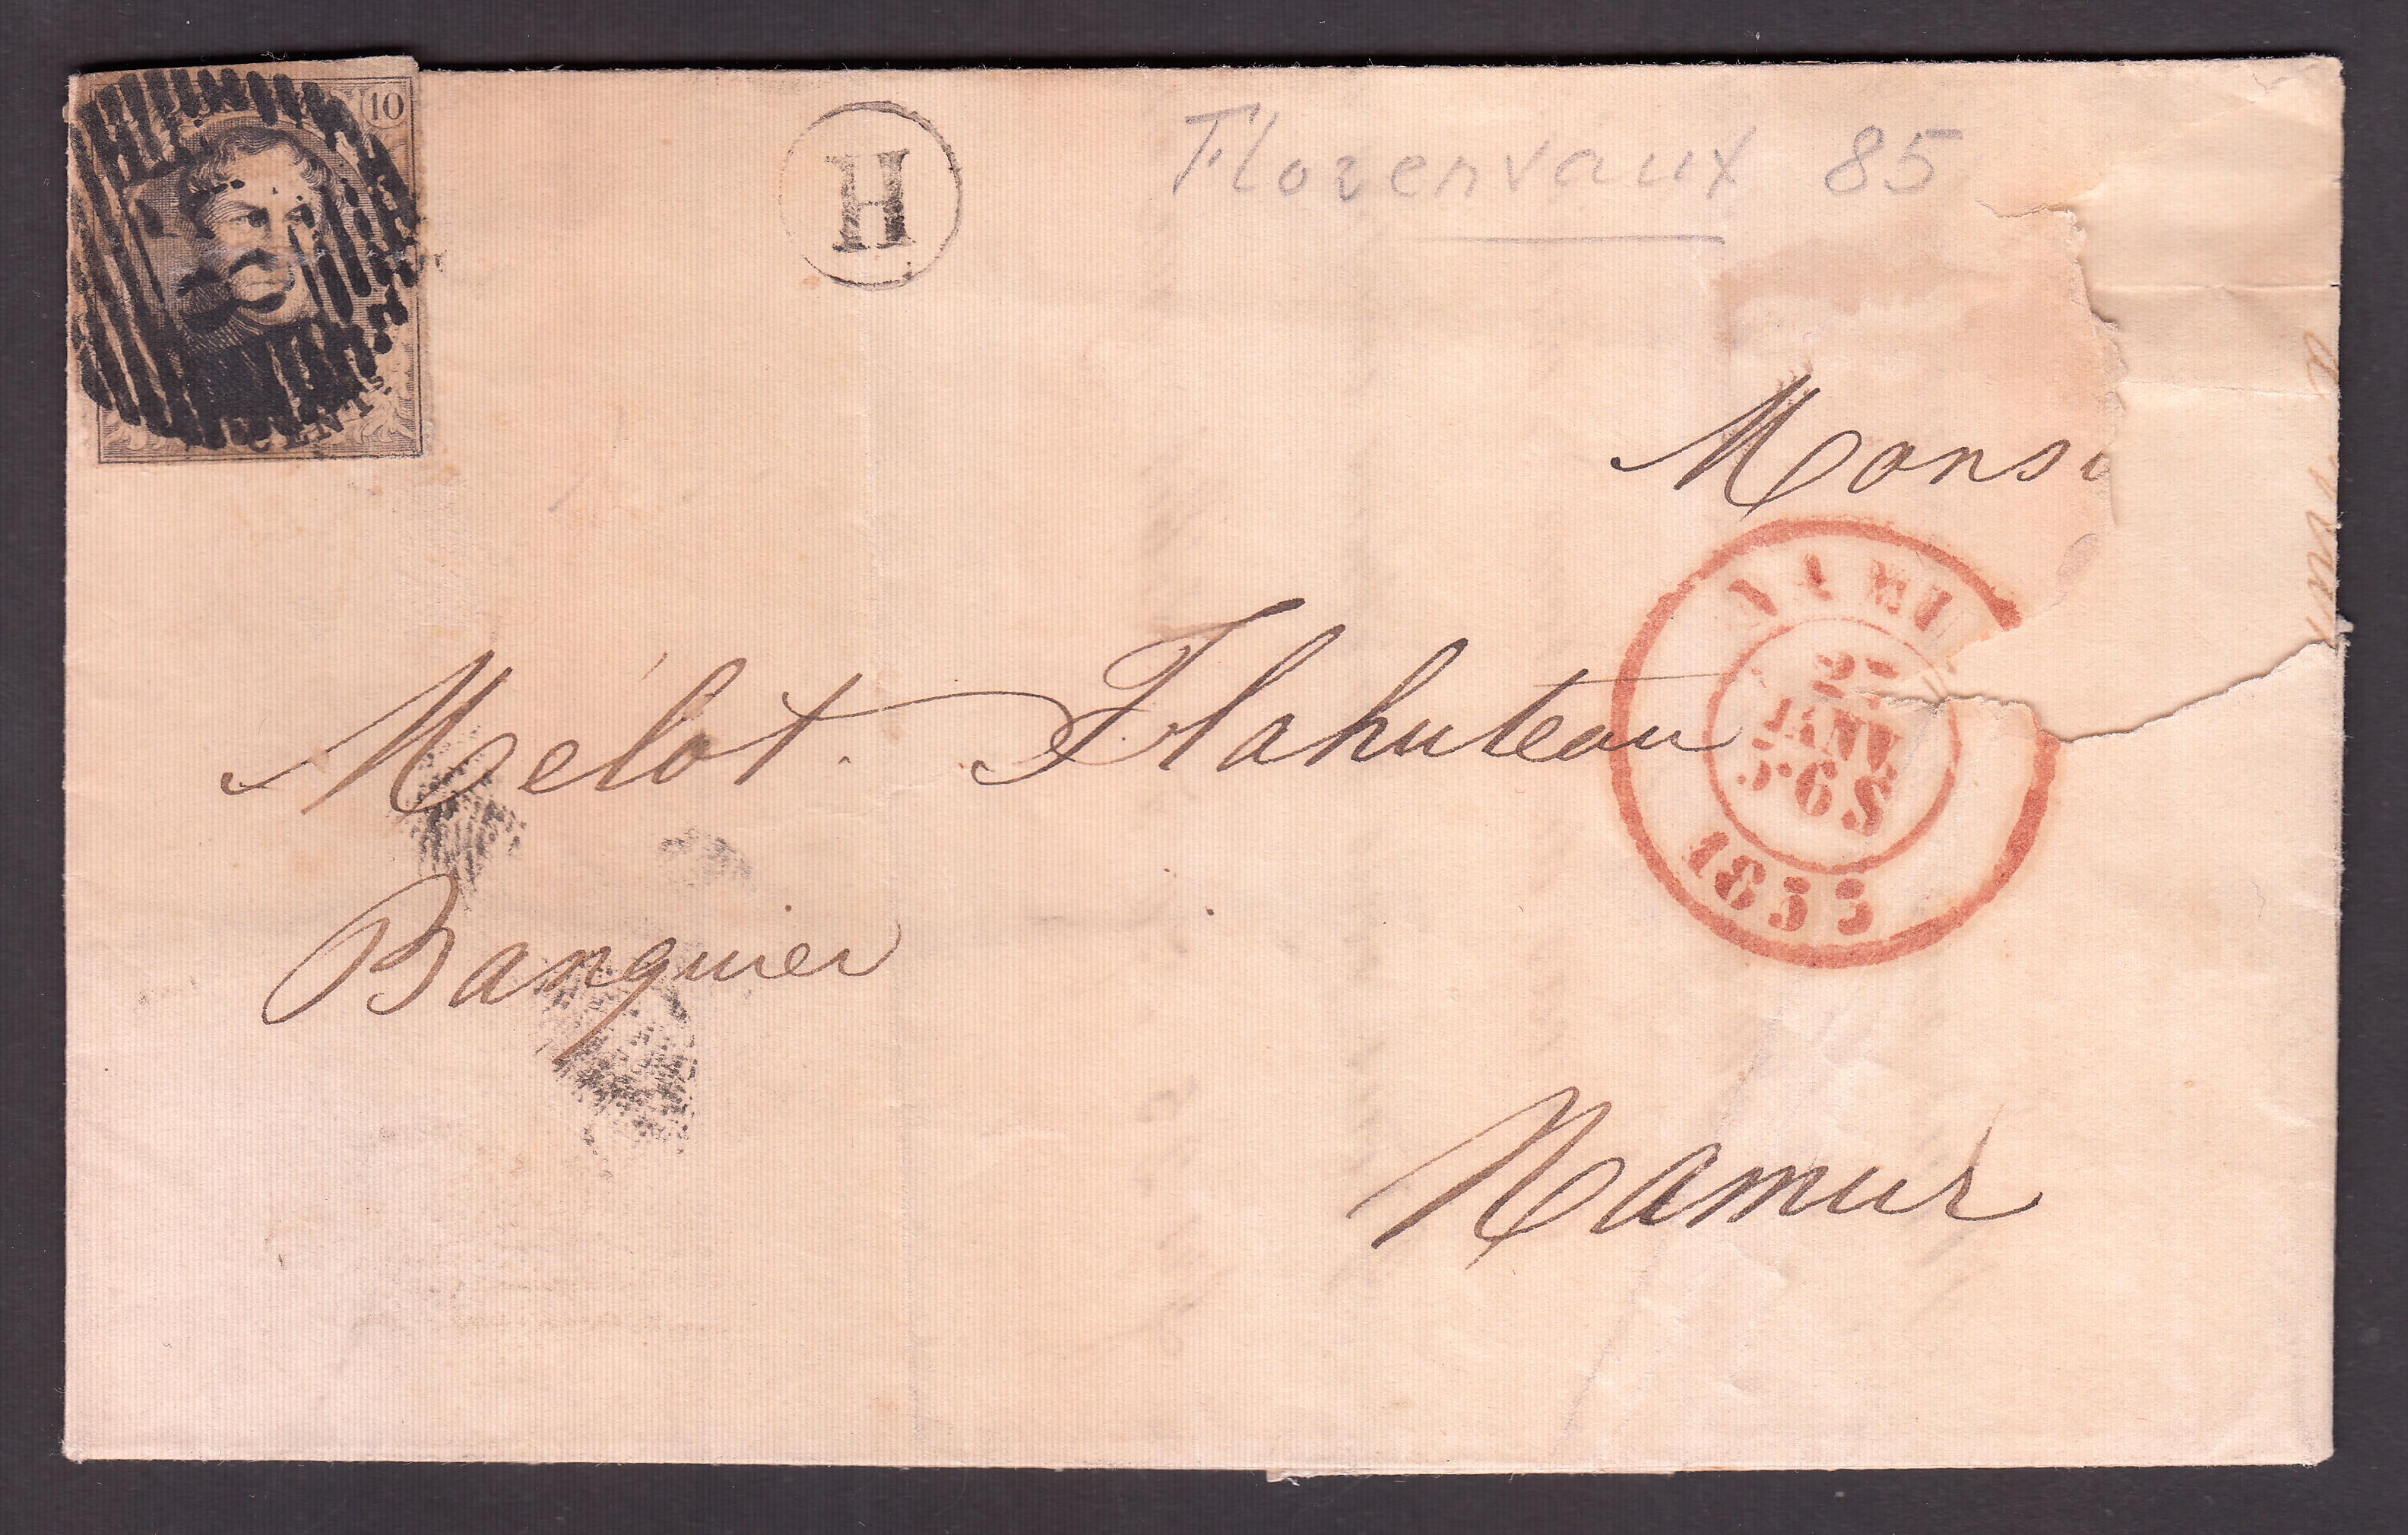 10
H
Florenvaux 85
Monsi
NAMU
27
JANV
5·6 S
1853
Mélot. Flahuteau
Banquier
Namur
CENTS.